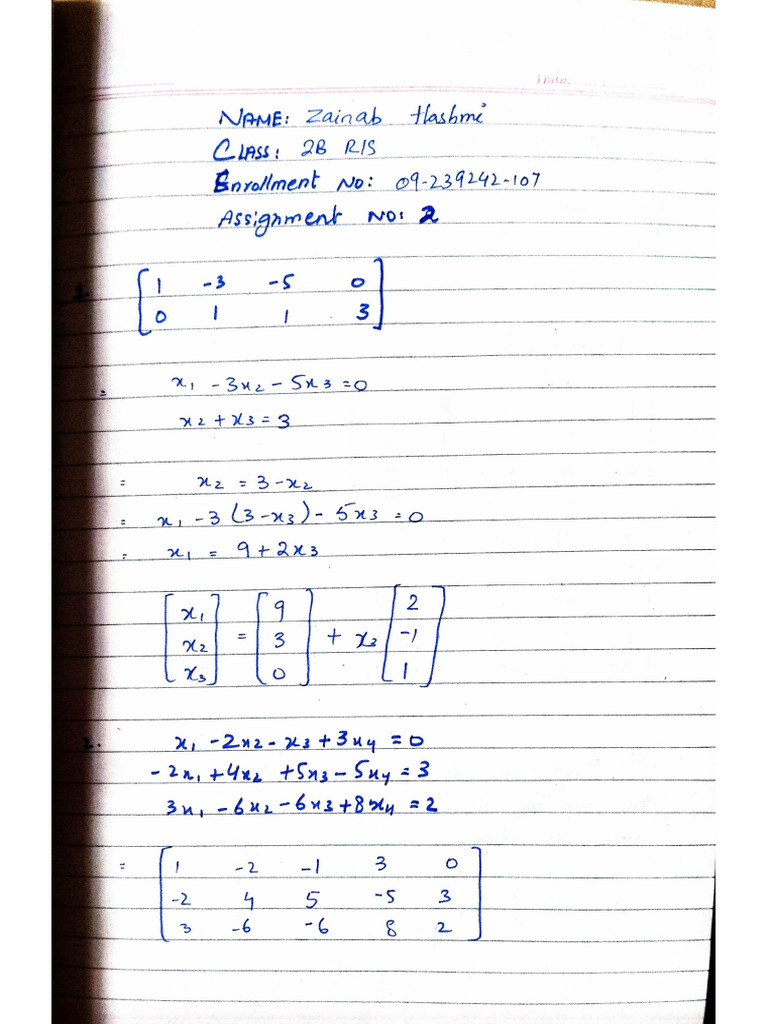 Date:
NAME: Zainab Hashmi
CLASS: 2B RIS
Enrollment NO: 09-239242-107
Assignment NO: 2
1. [1 -3 -5 0
0 1 1 3]
= x₁ - 3x₂ - 5x₃ = 0
x₂ + x₃ = 3
= x₂ = 3 - x₂
= x₁ - 3 (3 - x₃) - 5x₃ = 0
= x₁ = 9 + 2x₃
[x₁ x₂ x₃] = [9 3 0] + x₃ [2 -1 1]
2. x₁ - 2x₂ - x₃ + 3x₄ = 0
-2x₁ + 4x₂ + 5x₃ - 5x₄ = 3
3x₁ - 6x₂ - 6x₃ + 8x₄ = 2
= [1 -2 -1 3 0
-2 4 5 -5 3
3 -6 -6 8 2]